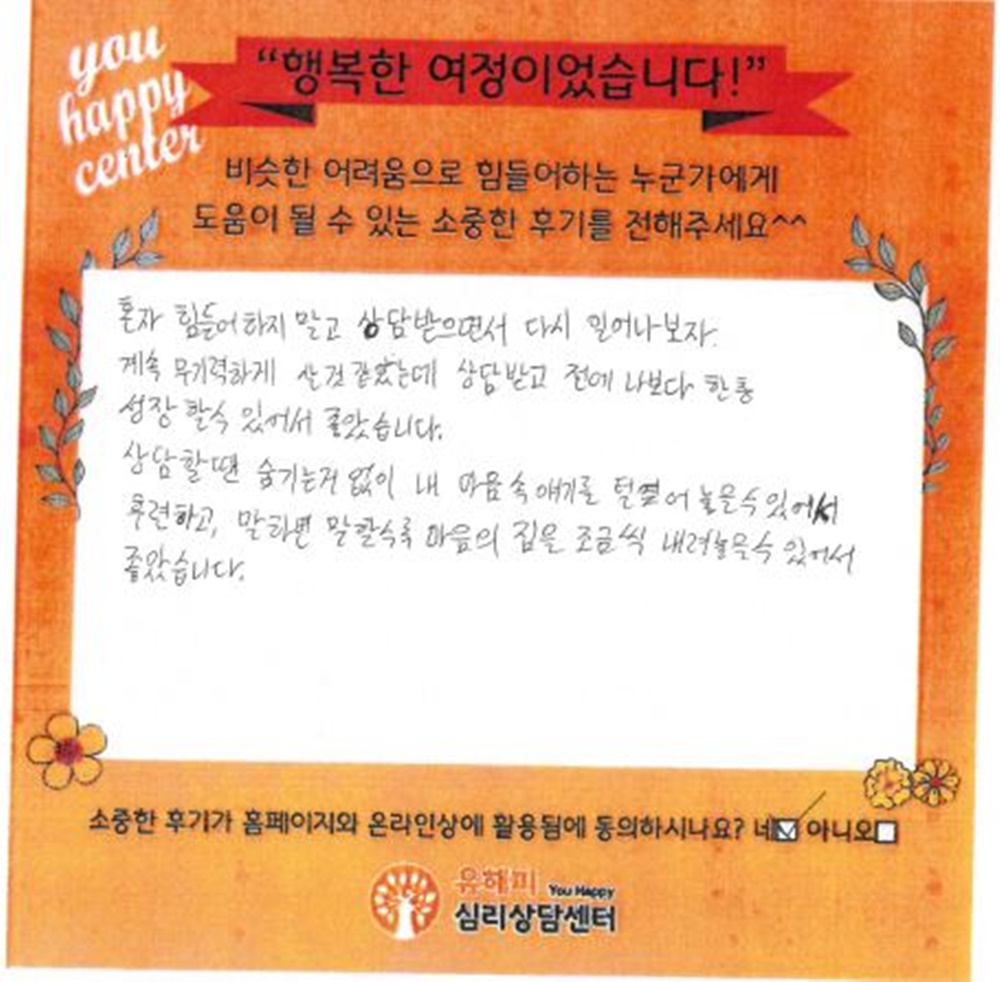 you
happy
center
“행복한 여정이었습니다!”
비슷한 어려움으로 힘들어하는 누군가에게
도움이 될 수 있는 소중한 후기를 전해주세요^^
혼자 힘들어하지 말고 상담받으면서 다시 일어나보자.
계속 무기력하게 살것 같았는데 상담받고 전에 나보다 한층
성장 할수 있어서 좋았습니다.
상담할땐 숨기는거 없이 내 마음속 얘기를 털어 놓을수 있어서
후련하고, 말하면 말할수록 마음의 짐을 조금씩 내려놓을수 있어서
좋았습니다.
소중한 후기가 홈페이지와 온라인상에 활용됨에 동의하시나요? 네☑ 아니오□
유해피 You Happy
심리상담센터